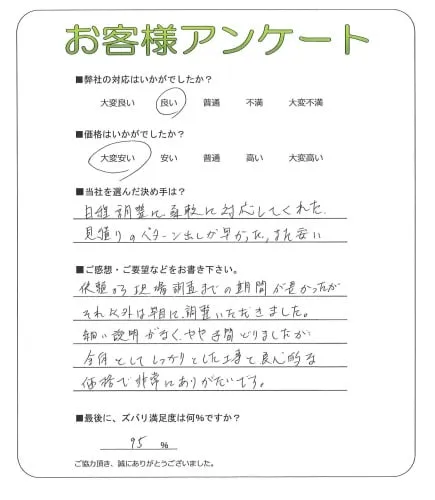 お客様アンケート
■弊社の対応はいかがでしたか？
大変良い 良い 普通 不満 大変不満
■価格はいかがでしたか？
大変安い 安い 普通 高い 大変高い
■当社を選んだ決め手は？
日程調整に柔軟に対応してくれた、
見積りのパターン出しが早かった、また安い
■ご感想・ご要望などをお書き下さい。
依頼から現場調査までの期間が長かったが
それ以外は早目に調整いただきました。
細い説明がなく、やや手間どりましたが
全体としてしっかりとした工事と良心的な
価格で非常にありがたいです。
■最後に、ズバリ満足度は何%ですか？
95 %
ご協力頂き、誠にありがとうございました。